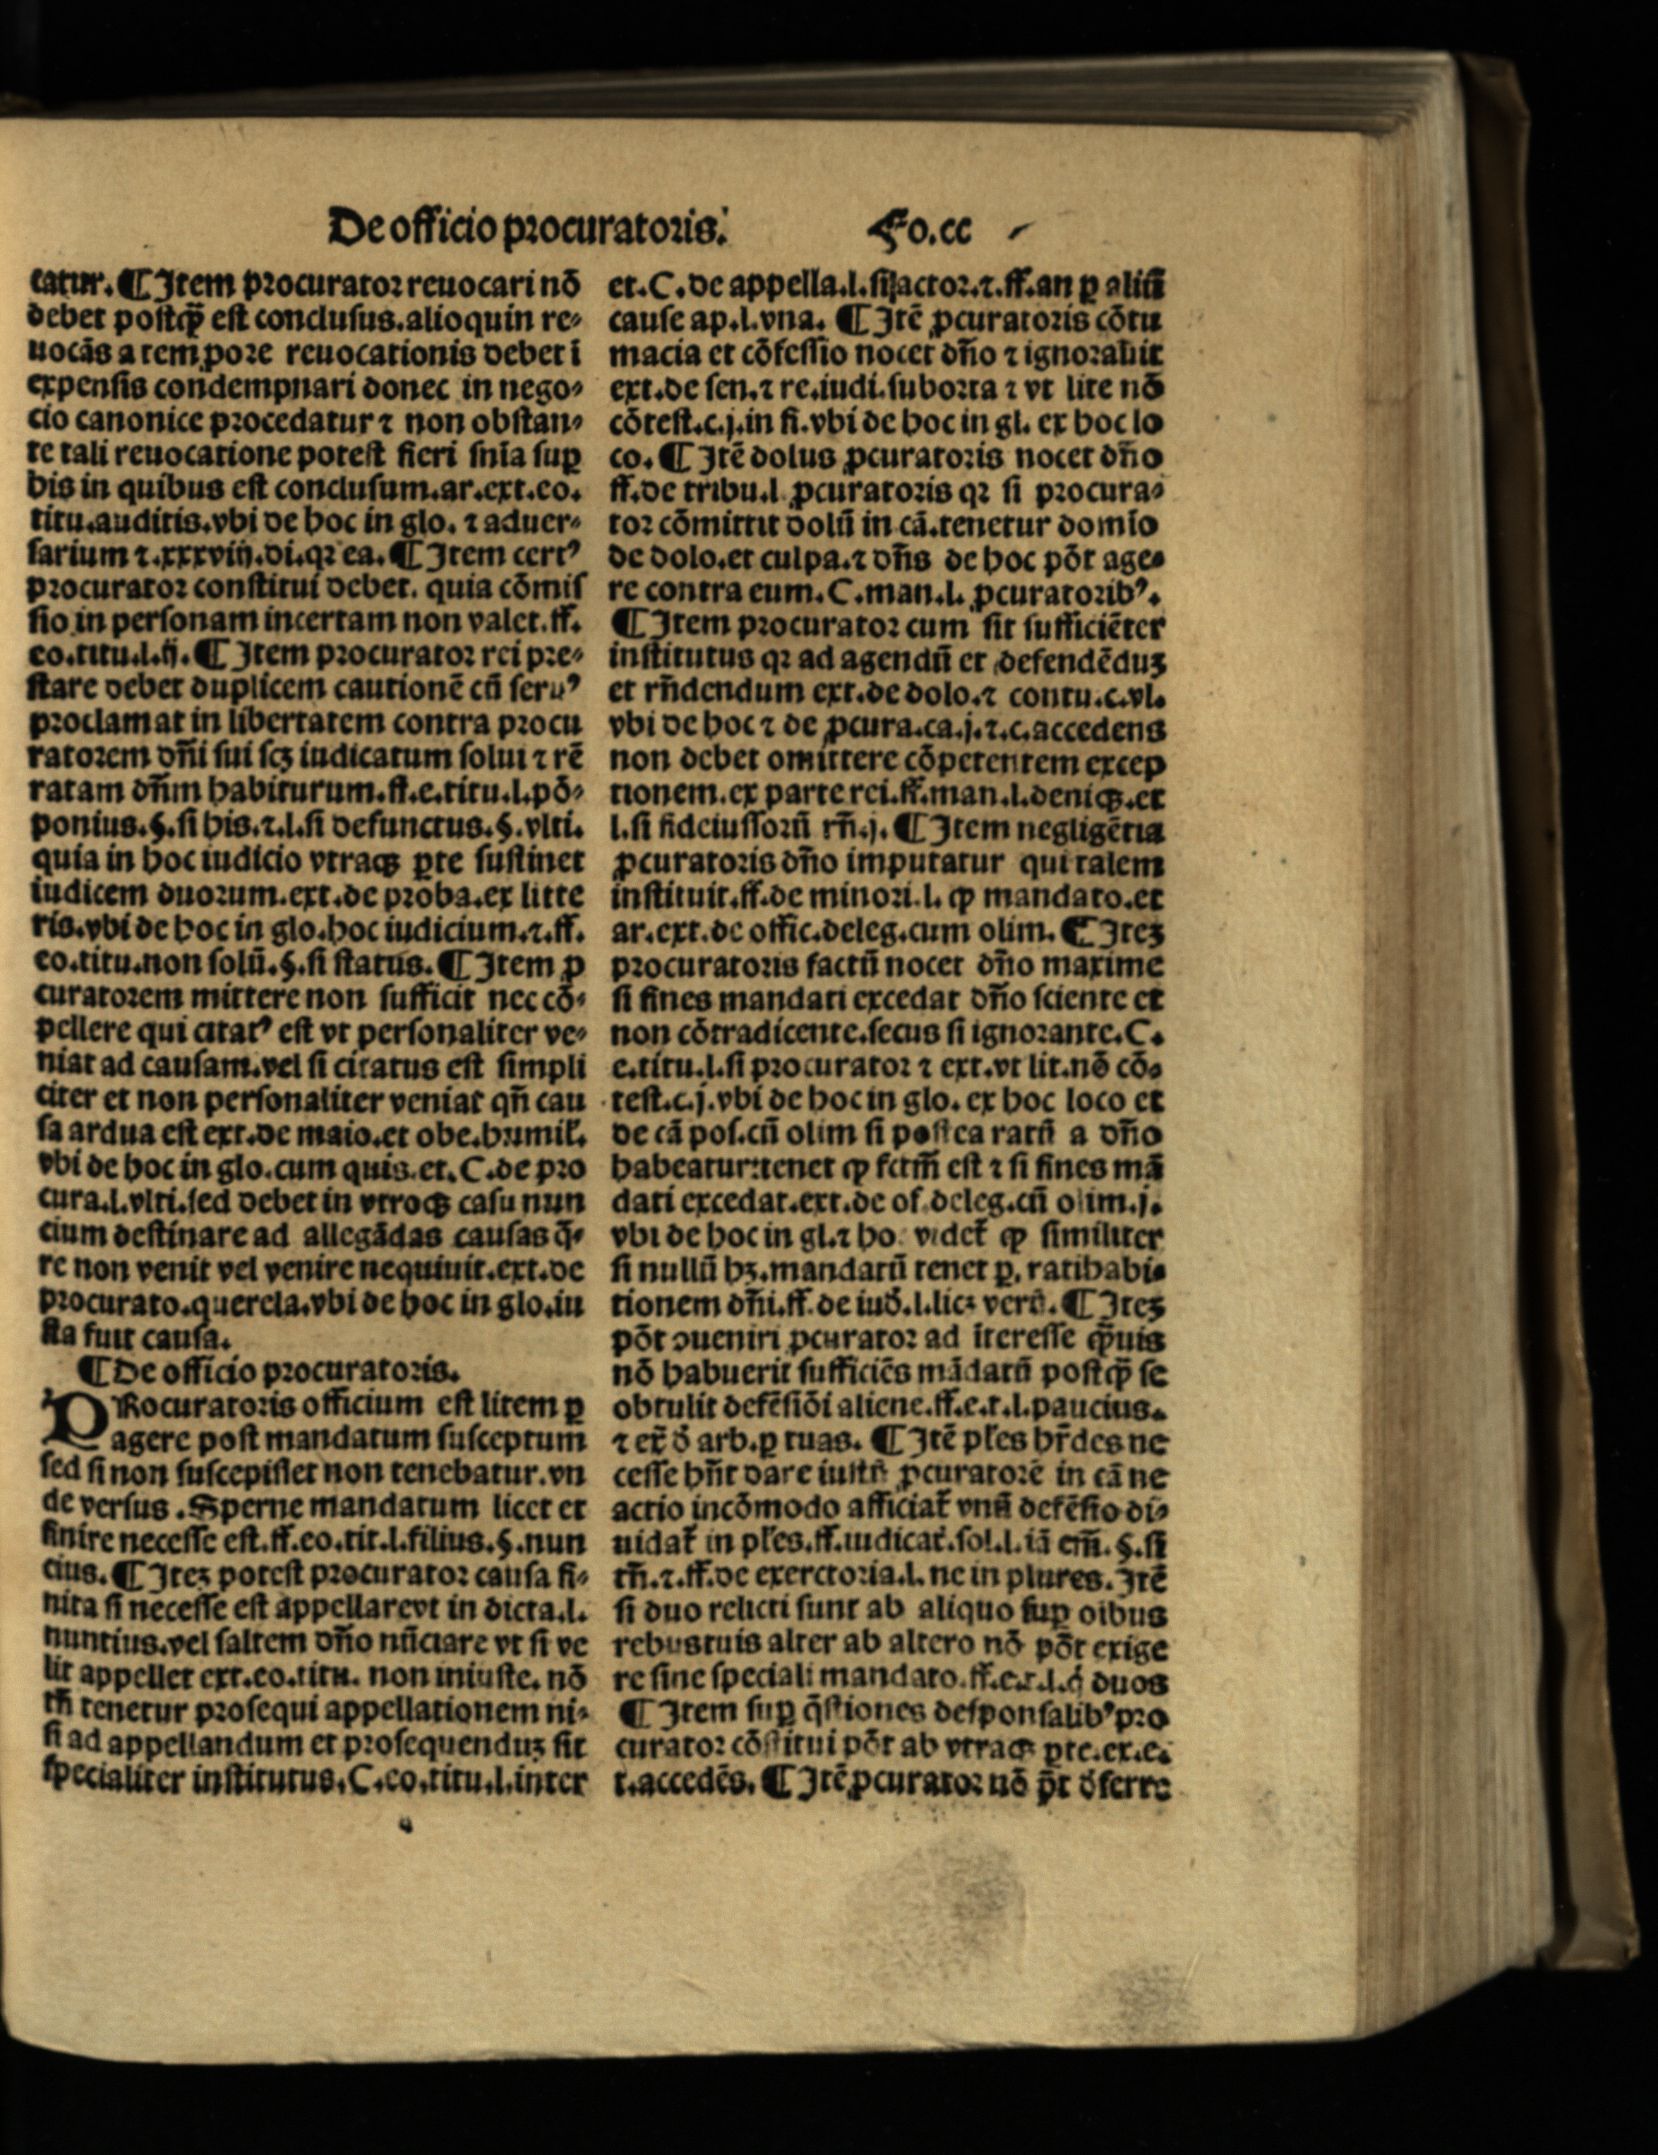 De officio procuratoris.
Fo.cc
catur. ¶ Item procurator reuocari nõ
debet postꝙ̃ est conclusus.alioquin re⸗
uocãs a tempore reuocationis debet ĩ
expensis condempnari donec in nego⸗
cio canonice procedatur ⁊ non obstan⸗
te tali reuocatione potest fieri snĩa suꝑ
his in quibus est conclusum.ar.ext.eo.
titu.auditis.vbi de hoc in glo. ⁊ aduer⸗
sarium ⁊.xxxviij.di.qꝛ ea. ¶ Item certꝰ
procurator constitui debet. quia cõmis
sio in personam incertam non valet.ff.
eo.titu.l.ij. ¶ Item procurator rei pre⸗
stare debet duplicem cautionẽ cũ seruꝰ
proclamat in libertatem contra procu
ratorem dñi sui scꝫ iudicatum solui ⁊ rẽ
ratam dñm habiturum.ff.e.titu.l.põ⸗
ponius.§.si his.⁊.l.si defunctus.§.vlti.
quia in hoc iudicio vtraqꝫ ꝑte sustinet
iudicem duorum.ext.de proba.ex litte
ris.vbi de hoc in glo.hoc iudicium.⁊.ff.
eo.titu.non solũ.§.si status. ¶ Item ꝓ
curatorem mittere non sufficit nec cõ⸗
pellere qui citatꝰ est vt personaliter ve⸗
niat ad causam.vel si citatus est simpli
citer et non personaliter veniat qñ cau
sa ardua est ext.de maio.et obe.humil̃.
vbi de hoc in glo.cum quis.et.C.de pro
cura.l.vlti.sed debet in vtroqꝫ casu nun
cium destinare ad allegãdas causas q̃⸗
re non venit vel venire nequiuit.ext.de
procurato.querela.vbi de hoc in glo.iu
sta fuit causa.
¶ De officio procuratoris.
PRocuratoris officium est litem ꝑ
agere post mandatum susceptum
sed si non suscepisset non tenebatur.vn
de versus. Sperne mandatum licet et
finire necesse est.ff.eo.tit.l.filius.§.nun
cius. ¶ Iteꝫ potest procurator causa fi⸗
nita si necesse est appellare vt in dicta.l.
nuntius.vel saltem dño nũciare vt si ve
lit appellet ext.eo.titu. non iniuste. nõ
tñ tenetur prosequi appellationem ni⸗
si ad appellandum et prosequenduꝫ sit
specialiter institutus.C.eo.titu.l.inter
et.C.de appella.l.si actor.⁊.ff.an ꝑ aliũ
cause ap.l.vna. ¶ Itẽ ꝓcuratoris cõtu
macia et cõfessio nocet dño ⁊ ignorauit
ext.de sen.⁊ re.iudi.suborta ⁊ vt lite nõ
cõtest.c.j.in fi.vbi de hoc in gl. ex hoc lo
co. ¶ Itẽ dolus ꝓcuratoris nocet dño
ff.de tribu.l ꝓcuratoris qꝛ si procura⸗
tor cõmittit dolũ in cã.tenetur domĩo
de dolo.et culpa.⁊ dñs de hoc põt age⸗
re contra eum.C.man.l. ꝓcuratoribꝰ.
¶ Item procurator cum sit sufficiẽter
institutus qꝛ ad agendũ et defendẽduꝫ
et rñdendum ext.de dolo.⁊ contu.c.vl.
vbi de hoc ⁊ de ꝓcura.ca.j.⁊.c.accedens
non debet omittere cõpetentem excep
tionem.ex parte rei.ff.man.l.deniqꝫ.et
l.si fideiussorũ rñ.j. ¶ Item negligẽtia
ꝓcuratoris dño imputatur qui talem
instituit.ff.de minori.l. ꝙ mandato.et
ar.ext.de offic.deleg.cum olim. ¶ Iteꝫ
procuratoris factũ nocet dño maxime
si fines mandati excedat dño sciente et
non cõtradicente.secus si ignorante.C.
e.titu.l.si procurator ⁊ ext.vt lit.nõ cõ⸗
test.c.j.vbi de hoc in glo. ex hoc loco et
de cã pos.cũ olim si postea ratũ a dño
habeatur:tenet ꝙ fctm̃ est ⁊ si fines mã
dati excedat.ext.de of.deleg.cũ olim.j.
vbi de hoc in gl.⁊ ho videt̃ ꝙ similiter
si nullũ hꝫ.mandatũ tenet ꝑ. ratihabi⸗
tionem dñi.ff.de iud̃.l.licꝫ verũ. ¶ Iteꝫ
põt ɔueniri ꝓcurator ad ĩteresse ꝙ̃uis
nõ habuerit sufficiẽs mãdatũ postꝙ̃ se
obtulit defẽsiõi aliene.ff.e.t.l.paucius.
⁊ ex̃ d̃ arb.ꝑ tuas. ¶ Itẽ pl̃es hr̃des ne
cesse hñt dare iustũ ꝓcuratorẽ in cã ne
actio incõmodo afficiat̃ vnũ defẽsio di⸗
uidat̃ in pl̃es.ff.iudicat̃.sol.l.iã em̃.§.si
tñ.⁊.ff.de exerctoria.l. ne in plures. Itẽ
si duo relicti sunt ab aliquo suꝑ oĩbus
rebus tuis alter ab altero nõ põt exige
re sine speciali mandato.ff.e.t.l.q̃ duos
¶ Item suꝑ q̃stiones desponsalibꝰ pro
curator cõstitui põt ab vtraqꝫ ꝑte.ex.e.
t.accedẽs. ¶ Itẽ ꝓcurator nõ p̃t d̃ferre